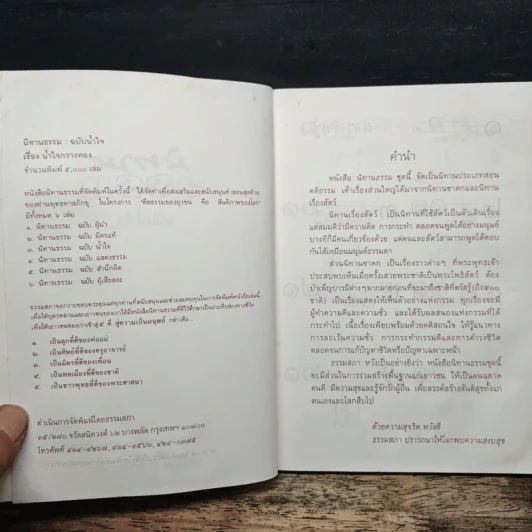 นิทานธรรม : ฉบับน้ำใจ
เรื่อง น้ำใจกวางทอง
จำนวนพิมพ์ ๕,๐๐๐ เล่ม
หนังสือนิทานธรรมที่จัดพิมพ์ในครั้งนี้ ได้จัดทำเพื่อส่งเสริมและสนับสนุนคำสอนสุดท้าย
ของท่านพุทธทาสภิกขุ ในโครงการ "ศีลธรรมของยุวชน คือ สันติภาพของโลก"
มีทั้งหมด ๖ เล่ม
๑ นิทานธรรม ฉบับ ผู้นำ
๒ นิทานธรรม ฉบับ มิตรแท้
๓ นิทานธรรม ฉบับ น้ำใจ
๔ นิทานธรรม ฉบับ แสดงธรรม
๕ นิทานธรรม ฉบับ สำนึกผิด
๖ นิทานธรรม ฉบับ ผู้เสียสละ
ธรรมสภาขอกราบขอบพระคุณแด่ทุกท่านที่สนับสนุนและช่วยสมทบทุนในการจัดพิมพ์หนังสือเล่มนี้
๑. เป็นลูกที่ดีของพ่อแม่
๒ เป็นศิษย์ที่ดีของครูอาจารย์
๓. เป็นมิตรที่ดีของเพื่อน
๔ เป็นพลเมืองที่ดีของชาติ
๕ เป็นชาวพุทธที่ดีของพระศาสนา
ดำเนินการจัดพิมพ์โดยธรรมสภา
๓๕/๒๗๐ จรัลสนิทวงศ์ ๖๒ บางพลัด กรุงเทพฯ ๑๐๗๐๐
คำนำ
หนังสือ นิทานธรรม ชุดนี้ จัดเป็นนิทานประเภทสอน
คติธรรม เค้าเรื่องส่วนใหญ่ได้มาจากนิทานชาดกและนิทาน
เรื่องสัตว์
นิทานเรื่องสัตว์ เป็นนิทานที่ใช้สัตว์เป็นตัวเดินเรื่อง
แต่สมมติว่ามีความคิด การกระทำ ตลอดจนพูดได้อย่างมนุษย์
บางทีก็มีคนเกี่ยวข้องด้วย แต่คนและสัตว์สามารถพูดโต้ตอบ
กันได้เหมือนมนุษย์ธรรมดา
ส่วนนิทานชาดก เป็นเรื่องราวต่าง ๆ ที่พระพุทธเจ้า
ประสบพบเห็นเมื่อครั้งเสวยพระชาติเป็นพระโพธิสัตว์ ต้อง
บำเพ็ญบารมีต่างๆมากมายก่อนที่จะมาถึงชาติที่ตรัสรู้ (ถึง ๕๐๐
ชาติ) เป็นเรื่องแสดงให้เห็นตัวอย่างแห่งกรรม ทุกเรื่องจะมี
ผู้ทำความดีและความชั่ว และได้รับผลสนองแห่งกรรมที่ได้
กระทำไป เนื้อเรื่องเพียบพร้อมด้วยคติสอนใจ ให้รู้แนวทาง
การละเว้นความชั่ว การกระทำกรรมดีและการดำรงชีวิต
ตลอดจนการแก้ปัญหาชีวิตหรือปัญหาเฉพาะหน้า
ธรรมสภา หวังเป็นอย่างยิ่งว่า หนังสือนิทานธรรมชุดนี้
จะมีส่วนในการร่วมสร้างพื้นฐานแก่เยาวชน ให้เป็นคนฉลาด
คนดี มีความสุขและรู้จักรักผู้อื่น เพื่อสรรค์สร้างสันติสุขทั้งแก่
ตนเองและโลกสืบไป
ด้วยความสุจริต หวังดี
ธรรมสภา ปรารถนาให้โลกพบความสงบสุข